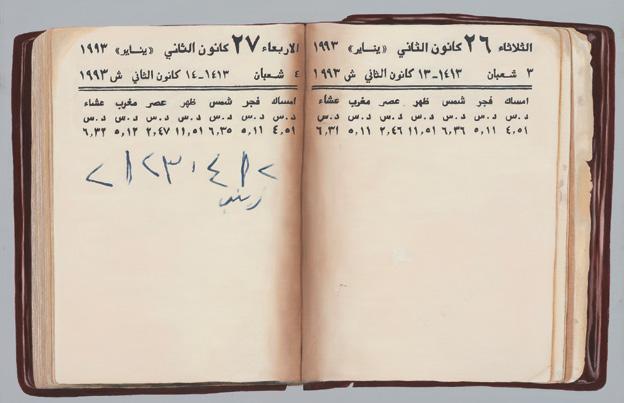 الثلاثاء ٢٦ كانون الثاني «ينـاير» ١٩٩٣
٣ شعبان ١٤١٣ - ١٣ كانون الثاني ش ١٩٩٣
امساك فجر شمس ظهر عصر مغرب عشاء
د.س د.س د.س د.س د.س د.س د.س
٤,٥١ ٥,١١ ٦,٣٦ ١١,٥١ ٢,٤٦ ٥,١١ ٦,٣١
الاربعاء ٢٧ كانون الثاني «ينـاير» ١٩٩٣
٤ شعبان ١٤١٣ - ١٤ كانون الثاني ش ١٩٩٣
امساك فجر شمس ظهر عصر مغرب عشاء
د.س د.س د.س د.س د.س د.س د.س
٤,٥١ ٥,١١ ٦,٣٥ ١١,٥١ ٢,٤٧ ٥,١٢ ٦,٣٢